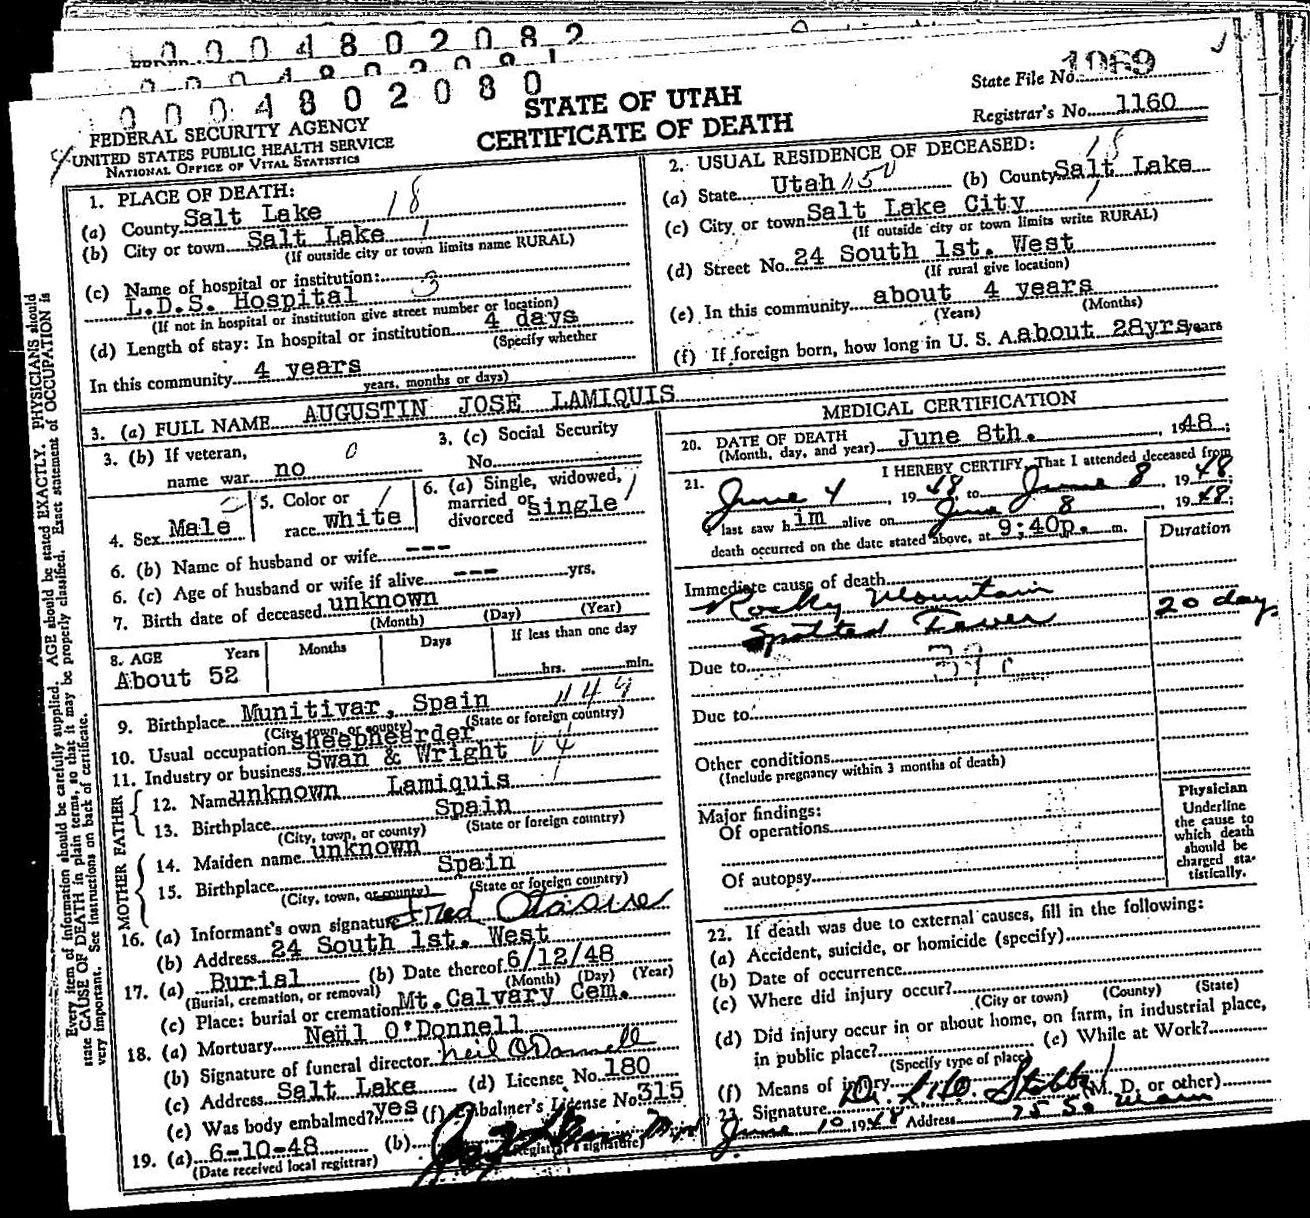 0 0 0 4 8 0 2 0 8 2
0 0 0 4 8 0 2 0 8 1
0 0 0 4 8 0 2 0 8 0
STATE OF UTAH
CERTIFICATE OF DEATH
State File No. 1969
Registrar's No. 1160
FEDERAL SECURITY AGENCY
UNITED STATES PUBLIC HEALTH SERVICE
NATIONAL OFFICE OF VITAL STATISTICS
Every item of information should be carefully supplied. AGE should be stated EXACTLY. PHYSICIANS should
state CAUSE OF DEATH in plain terms, so that it may be properly classified. Exact statement of OCCUPATION is
very important. See instructions on back of certificate.
1. PLACE OF DEATH:
(a) County Salt Lake 18
(b) City or town Salt Lake 1
(If outside city or town limits name RURAL)
(c) Name of hospital or institution: 3
L.D.S. Hospital
(If not in hospital or institution give street number or location)
(d) Length of stay: In hospital or institution 4 days
(Specify whether
In this community 4 years
years, months or days)
2. USUAL RESIDENCE OF DECEASED: 18
(a) State Utah 150 (b) County Salt Lake
(c) City or town Salt Lake City 1
(If outside city or town limits write RURAL)
(d) Street No. 24 South 1st. West
(If rural give location)
(e) In this community about 4 years
(Years) (Months)
(f) If foreign born, how long in U. S. A. about 28yrs years
3. (a) FULL NAME AUGUSTIN JOSE LAMIQUIS
3. (b) If veteran, 0
name war no
3. (c) Social Security
No.
4. Sex Male
5. Color or
race white
6. (a) Single, widowed,
married or
divorced single
6. (b) Name of husband or wife ---
6. (c) Age of husband or wife if alive --- yrs.
7. Birth date of deceased unknown
(Month) (Day) (Year)
8. AGE Years Months Days If less than one day
About 52 hrs. min.
9. Birthplace Munitivar, Spain
(City, town, or county) (State or foreign country)
10. Usual occupation sheepherder
11. Industry or business Swan & Wright
FATHER
12. Name unknown Lamiquis
13. Birthplace Spain
(City, town, or county) (State or foreign country)
MOTHER
14. Maiden name unknown
15. Birthplace Spain
(City, town, or county) (State or foreign country)
16. (a) Informant's own signature Fred
(b) Address 24 South 1st. West
17. (a) Burial (b) Date thereof 6/12/48
(Burial, cremation, or removal) (Month) (Day) (Year)
(c) Place: burial or cremation Mt. Calvary Cem.
18. (a) Mortuary Neil O'Donnell
(b) Signature of funeral director Neil O'Donnell
(c) Address Salt Lake (d) License No. 180
(e) Was body embalmed? yes (f) Embalmer's License No 315
19. (a) 6-10-48 (b)
(Date received local registrar) Registrar's signature)
MEDICAL CERTIFICATION
20. DATE OF DEATH
(Month, day, and year) June 8th. , 1948;
21. I HEREBY CERTIFY, That I attended deceased from
June 4 , 1948, to June 8 1948
I last saw him alive on June 8 1948;
death occurred on the date stated above, at 9:40p. m.
Duration
Immediate cause of death
Rocky Mountain
Spotted Fever 20 days
Due to
Due to
Other conditions
(Include pregnancy within 3 months of death)
Major findings:
Of operations
Of autopsy
Physician
Underline
the cause to
which death
should be
charged sta-
tistically.
22. If death was due to external causes, fill in the following:
(a) Accident, suicide, or homicide (specify)
(b) Date of occurrence
(c) Where did injury occur?
(City or town) (County) (State)
(d) Did injury occur in or about home, on farm, in industrial place,
in public place? (e) While at Work?
(Specify type of place)
(f) Means of injury
23. Signature Dr. (M. D. or other)
June 10 1948 Address 75 So Main